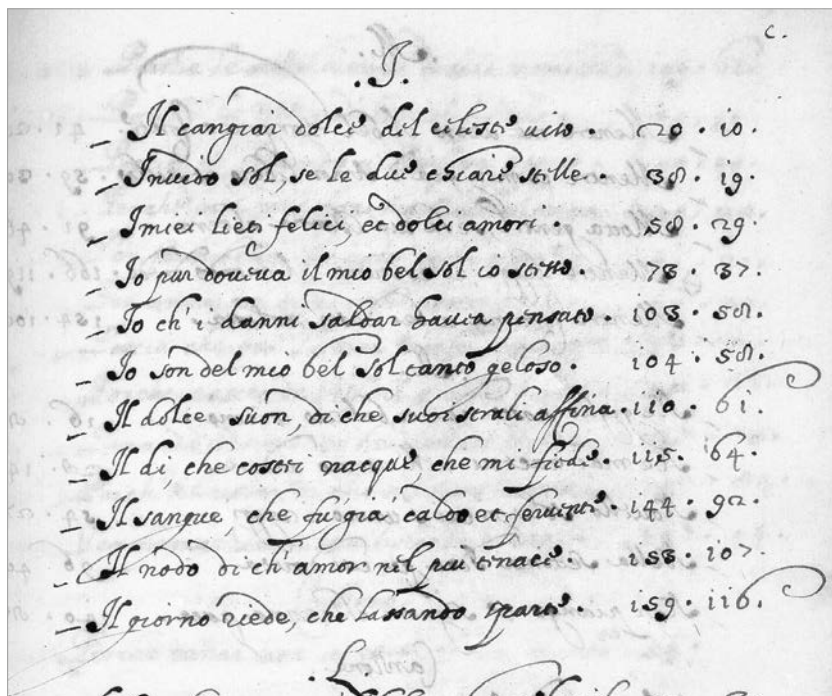 c.
.I.
Il cangiar dolce del celeste viso. 20. 10.
Inuido sol, se le due chiare stelle. 38. 19.
I miei lieti felici, et dolci amori. 58. 29.
Io pur doueua il mio bel sol io stesso. 73. 37.
Io ch'i danni saldar hauea pensato. 103. 58.
Io son del mio bel sol tanto geloso. 104. 58.
Il dolce suon, di che suoi strali affina. 110. 61.
Il di, che costei nacque, che mi fiede. 115. 64.
Il sangue che fu gia caldo et feruente. 144. 92.
Il nodo di ch'amor nel piu tenace. 153. 107.
Il giorno riede, che lassando sparte. 159. 116.
.L.